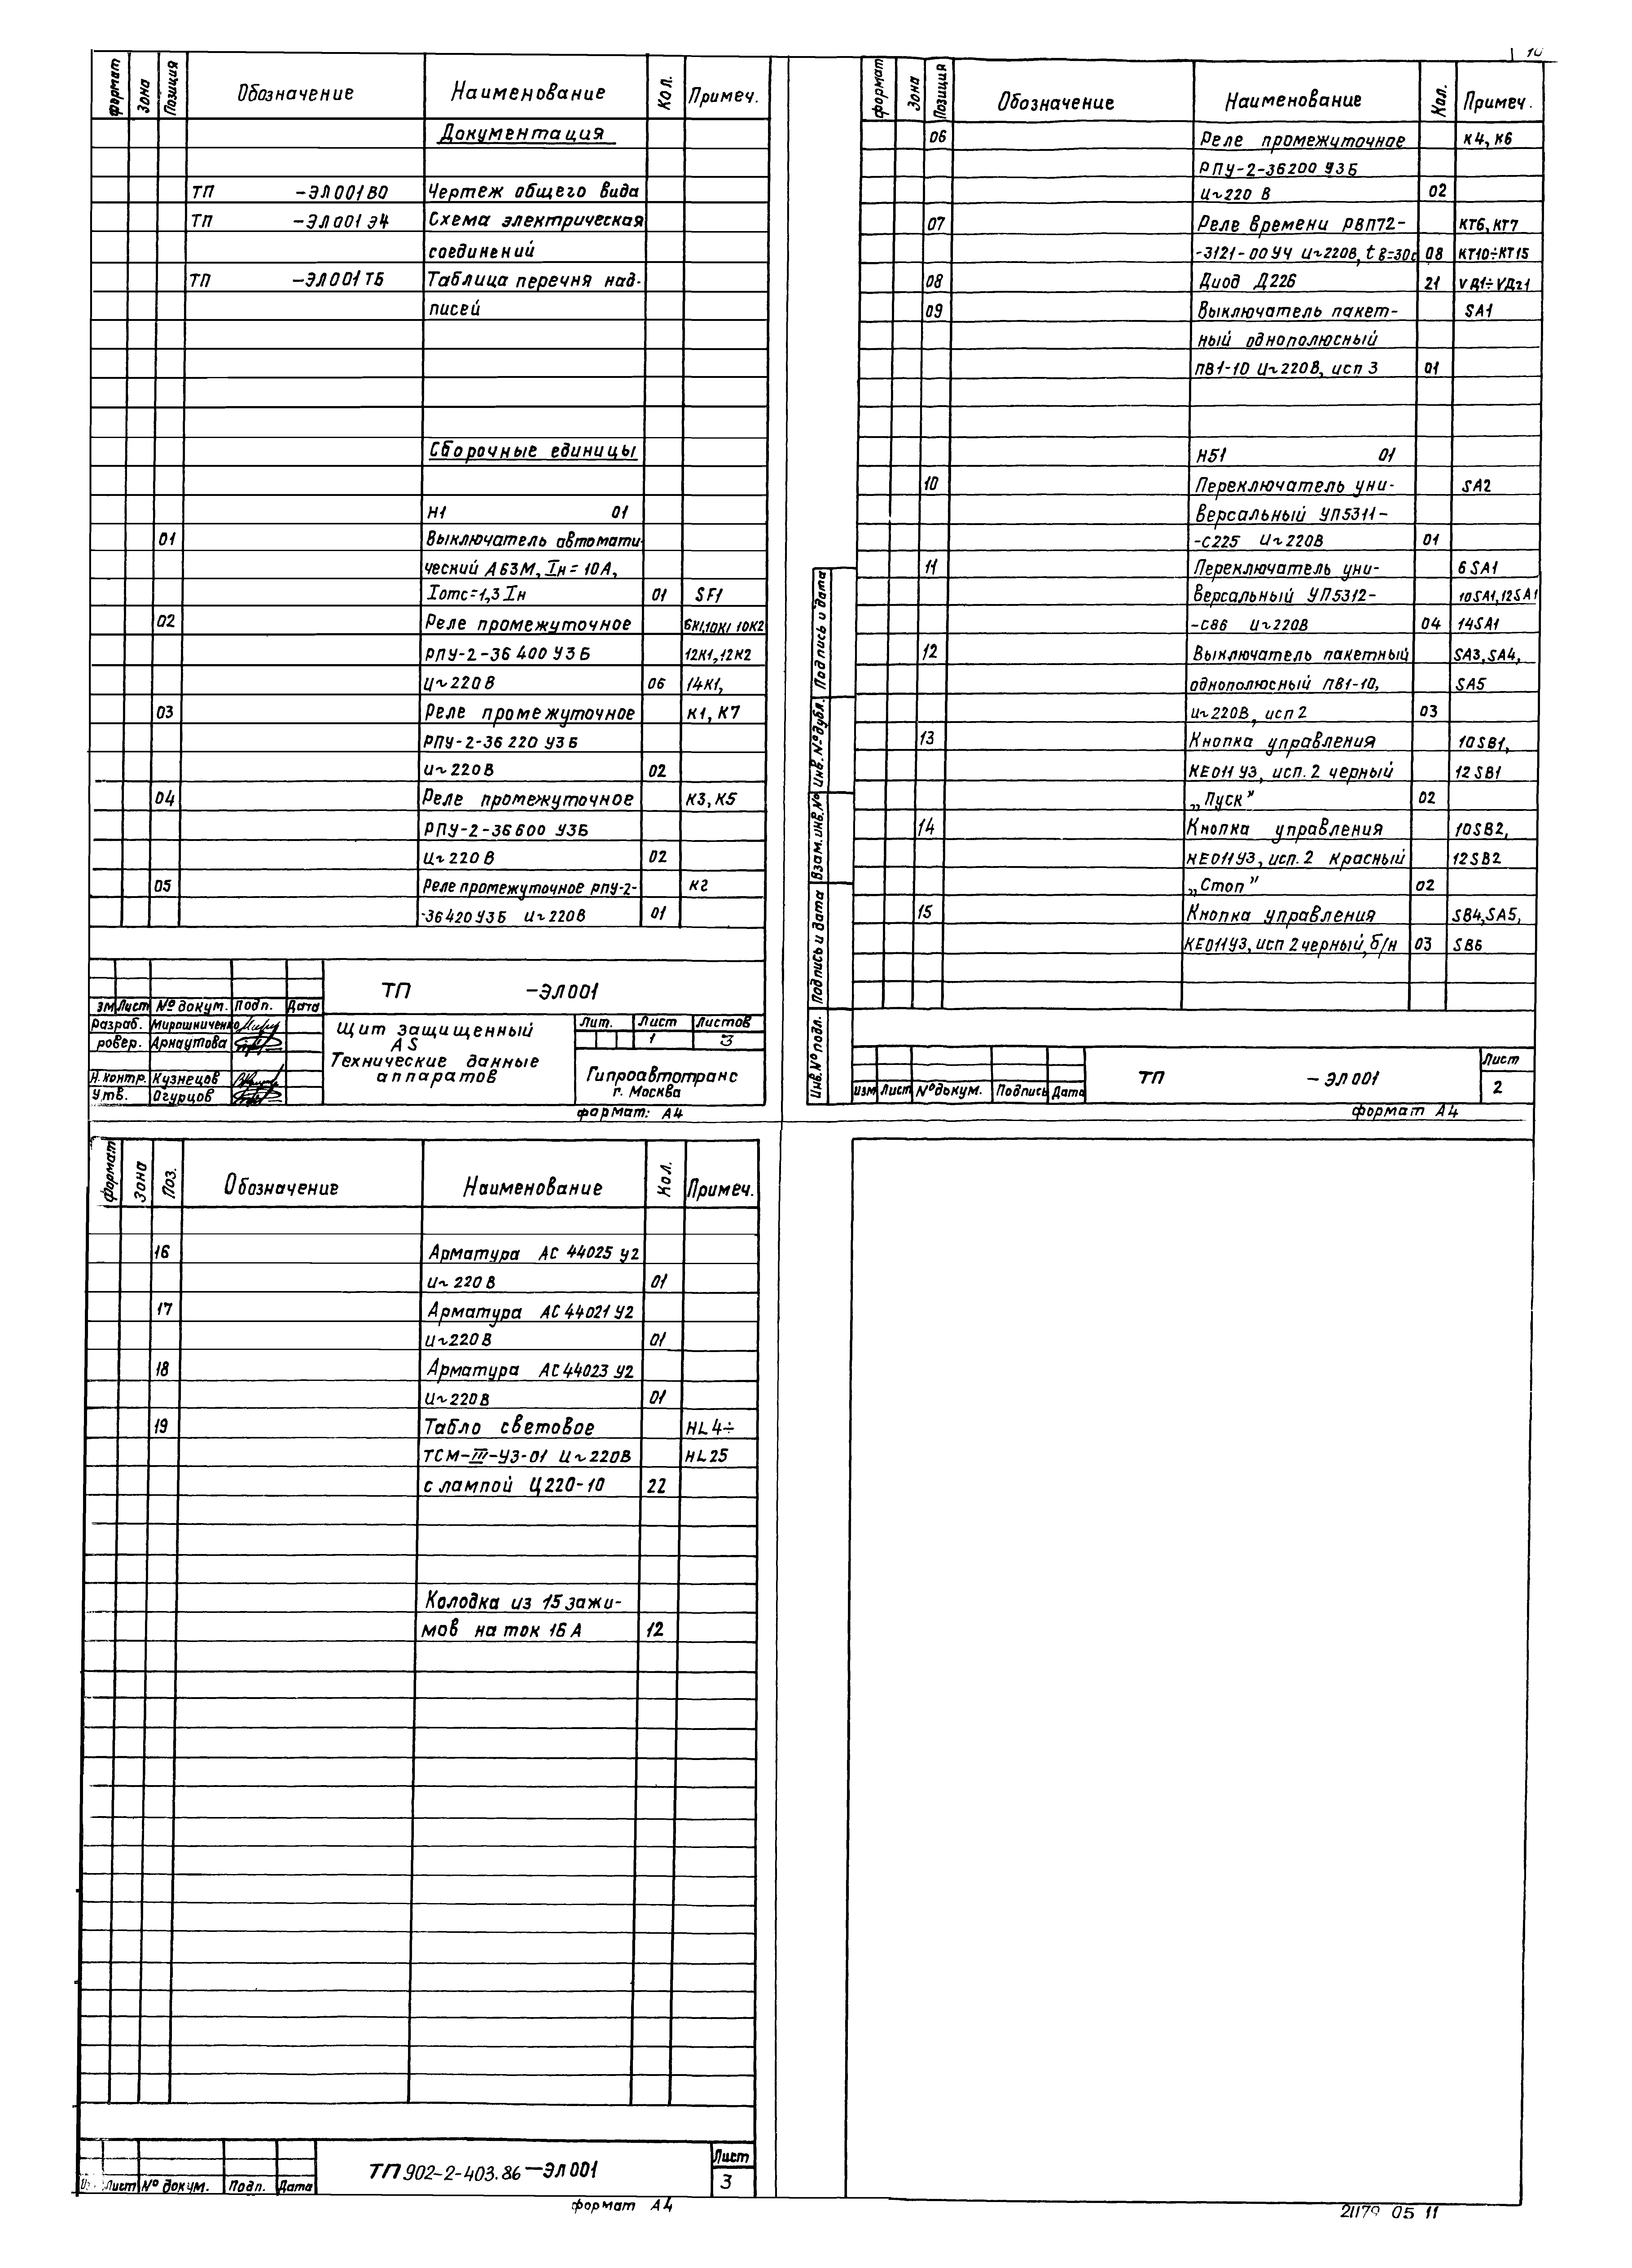 10
формат Зона Позиция Обозначение Наименование Кол. Примеч.
Документация
ТП -ЭЛ001ВО Чертеж общего вида
ТП -ЭЛ001 Э4 Схема электрическая
соединений
ТП -ЭЛ001 ТБ Таблица перечня над-
писей
Сборочные единицы
Н1 01
01 Выключатель автомати-
ческий А63М, Iн = 10А,
Iотс=1,3 Iн 01 SF1
02 Реле промежуточное 6К1,10К1 10К2
РПУ-2-36 400 У3Б 12К1,12К2
U~220В 06 14К1,
03 Реле промежуточное К1, К7
РПУ-2-36 220 У3Б
U~220В 02
04 Реле промежуточное К3, К5
РПУ-2-36600 У3Б
U~220В 02
05 Реле промежуточное РПУ-2- К2
-36420У3Б U~220В 01
ТП -ЭЛ001
зм Лист № докум. Подп. Дата
Разраб. Мирошниченко
ровер. Арнаутова
Н.контр. Кузнецов
Утв. Огурцов
Щит защищенный
AS
Технические данные
аппаратов
Лит. Лист Листов
1 3
Гипроавтотранс
г. Москва
формат: А4
формат Зона Позиция Обозначение Наименование Кол. Примеч.
06 Реле промежуточное К4, К6
РПУ-2-36200 У3Б
U~220 В 02
07 Реле времени РВП72- КТ6, КТ7
-3121-00У4 U~220В, t в=30с 08 КТ10÷КТ15
08 Диод Д226 21 VД1÷VД21
09 Выключатель пакет- SA1
ный однополюсный
ПВ1-10 U~220В, исп 3 01
Н51 01
10 Переключатель уни- SA2
версальный УП5311-
-С225 U~220В 01
11 Переключатель уни- 6SA1
версальный УП5312- 10SA1,12SA1
-С86 U~220В 04 14SA1
12 Выключатель пакетный SA3,SA4,
однополюсный ПВ1-10, SA5
U~220В, исп 2 03
13 Кнопка управления 10SB1,
КЕ011 У3, исп. 2 черный 12SB1
„Пуск” 02
14 Кнопка управления 10SB2,
КЕ011У3, исп. 2 красный 12SB2
„Стоп” 02
15 Кнопка управления SB4,SA5,
КЕ011У3, исп 2 черный, б/н 03 SB6
Инв.№ подл. Подпись и дата Взам.инв.№ Инв.№ дубл. Подпись и дата
изм Лист № докум. Подпись Дата
ТП -ЭЛ001
Лист
2
формат А4
формат Зона Поз. Обозначение Наименование Кол. Примеч.
16 Арматура АС 44025 У2
U~220В 01
17 Арматура АС 44021 У2
U~220В 01
18 Арматура АС 44023 У2
U~220В 01
19 Табло световое HL4÷
ТСМ-III-У3-01 U~220В HL25
с лампой Ц220-10 22
Колодка из 15 зажи-
мов на ток 16 А 12
Лист № докум. Подп. Дата
ТП 902-2-403.86-ЭЛ001
Лист
3
формат А4
21179 05 11